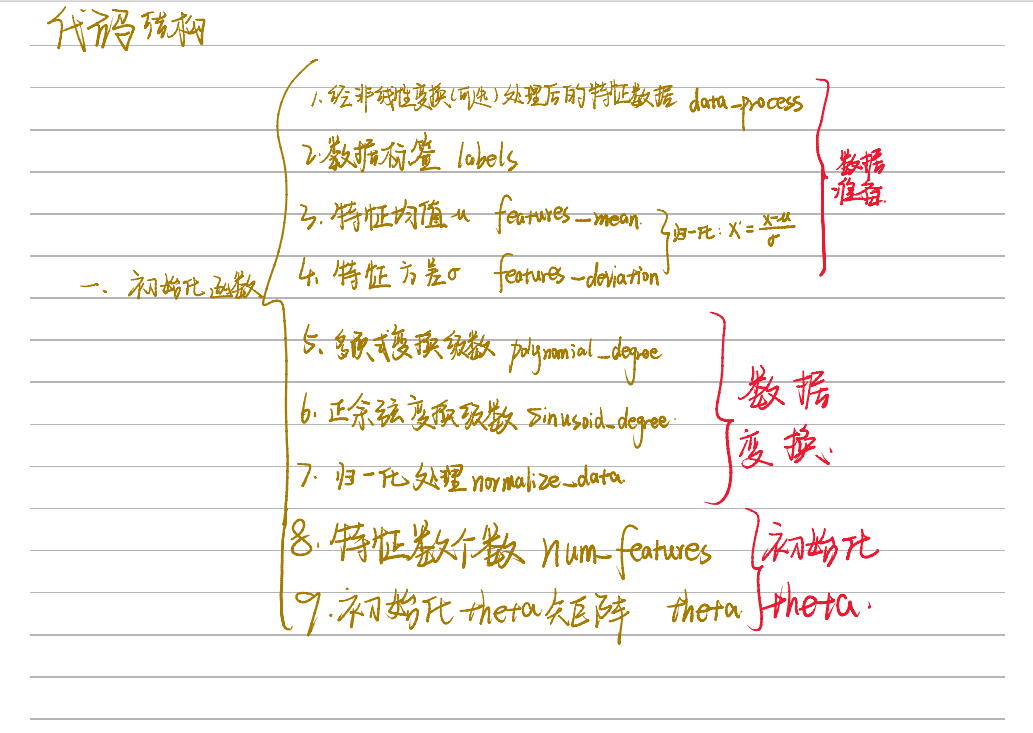 代码结构
1.经非线性变换(可选)处理后的特征数据 data_process
2.数据标签 labels
3.特征均值u features_mean
4.特征方差σ features_deviation
归一化: X' = (X-u)/σ
数据
准备
一、初始化函数
5.多项式变换级数 polynomial_degree
6.正余弦变换级数 sinusoid_degree
7.归一化处理 normalize_data
数据
变换
8.特征数个数 num_features
9.初始化theta矩阵 theta
初始化
theta.